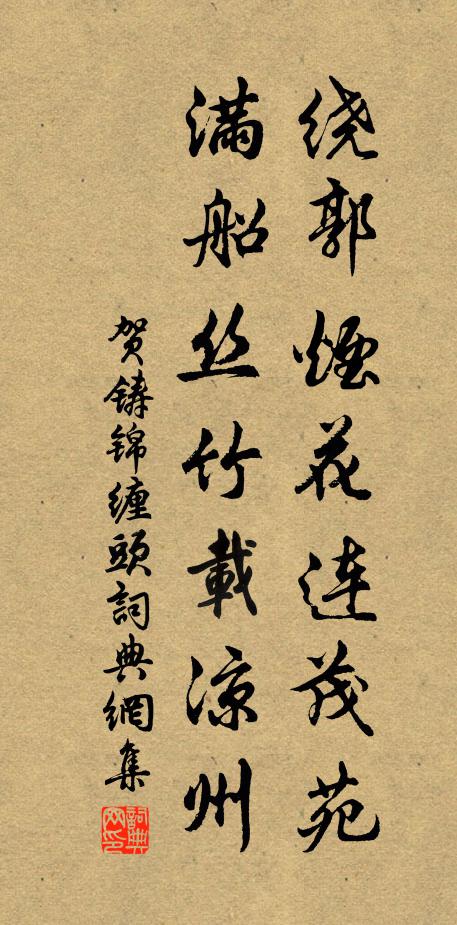 绕郭烟花连茂苑
满船丝竹載凉州
贺铸锦缠頭詞典網集
詞典网印